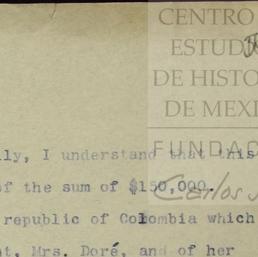 CENTRO
ESTUDI
DE HISTO
DE MEXI
FUNDAC
Carlos
lly, I understand that this
of the sum of $150,000.
republic of Colombia which
t, Mrs. Doré, and of her